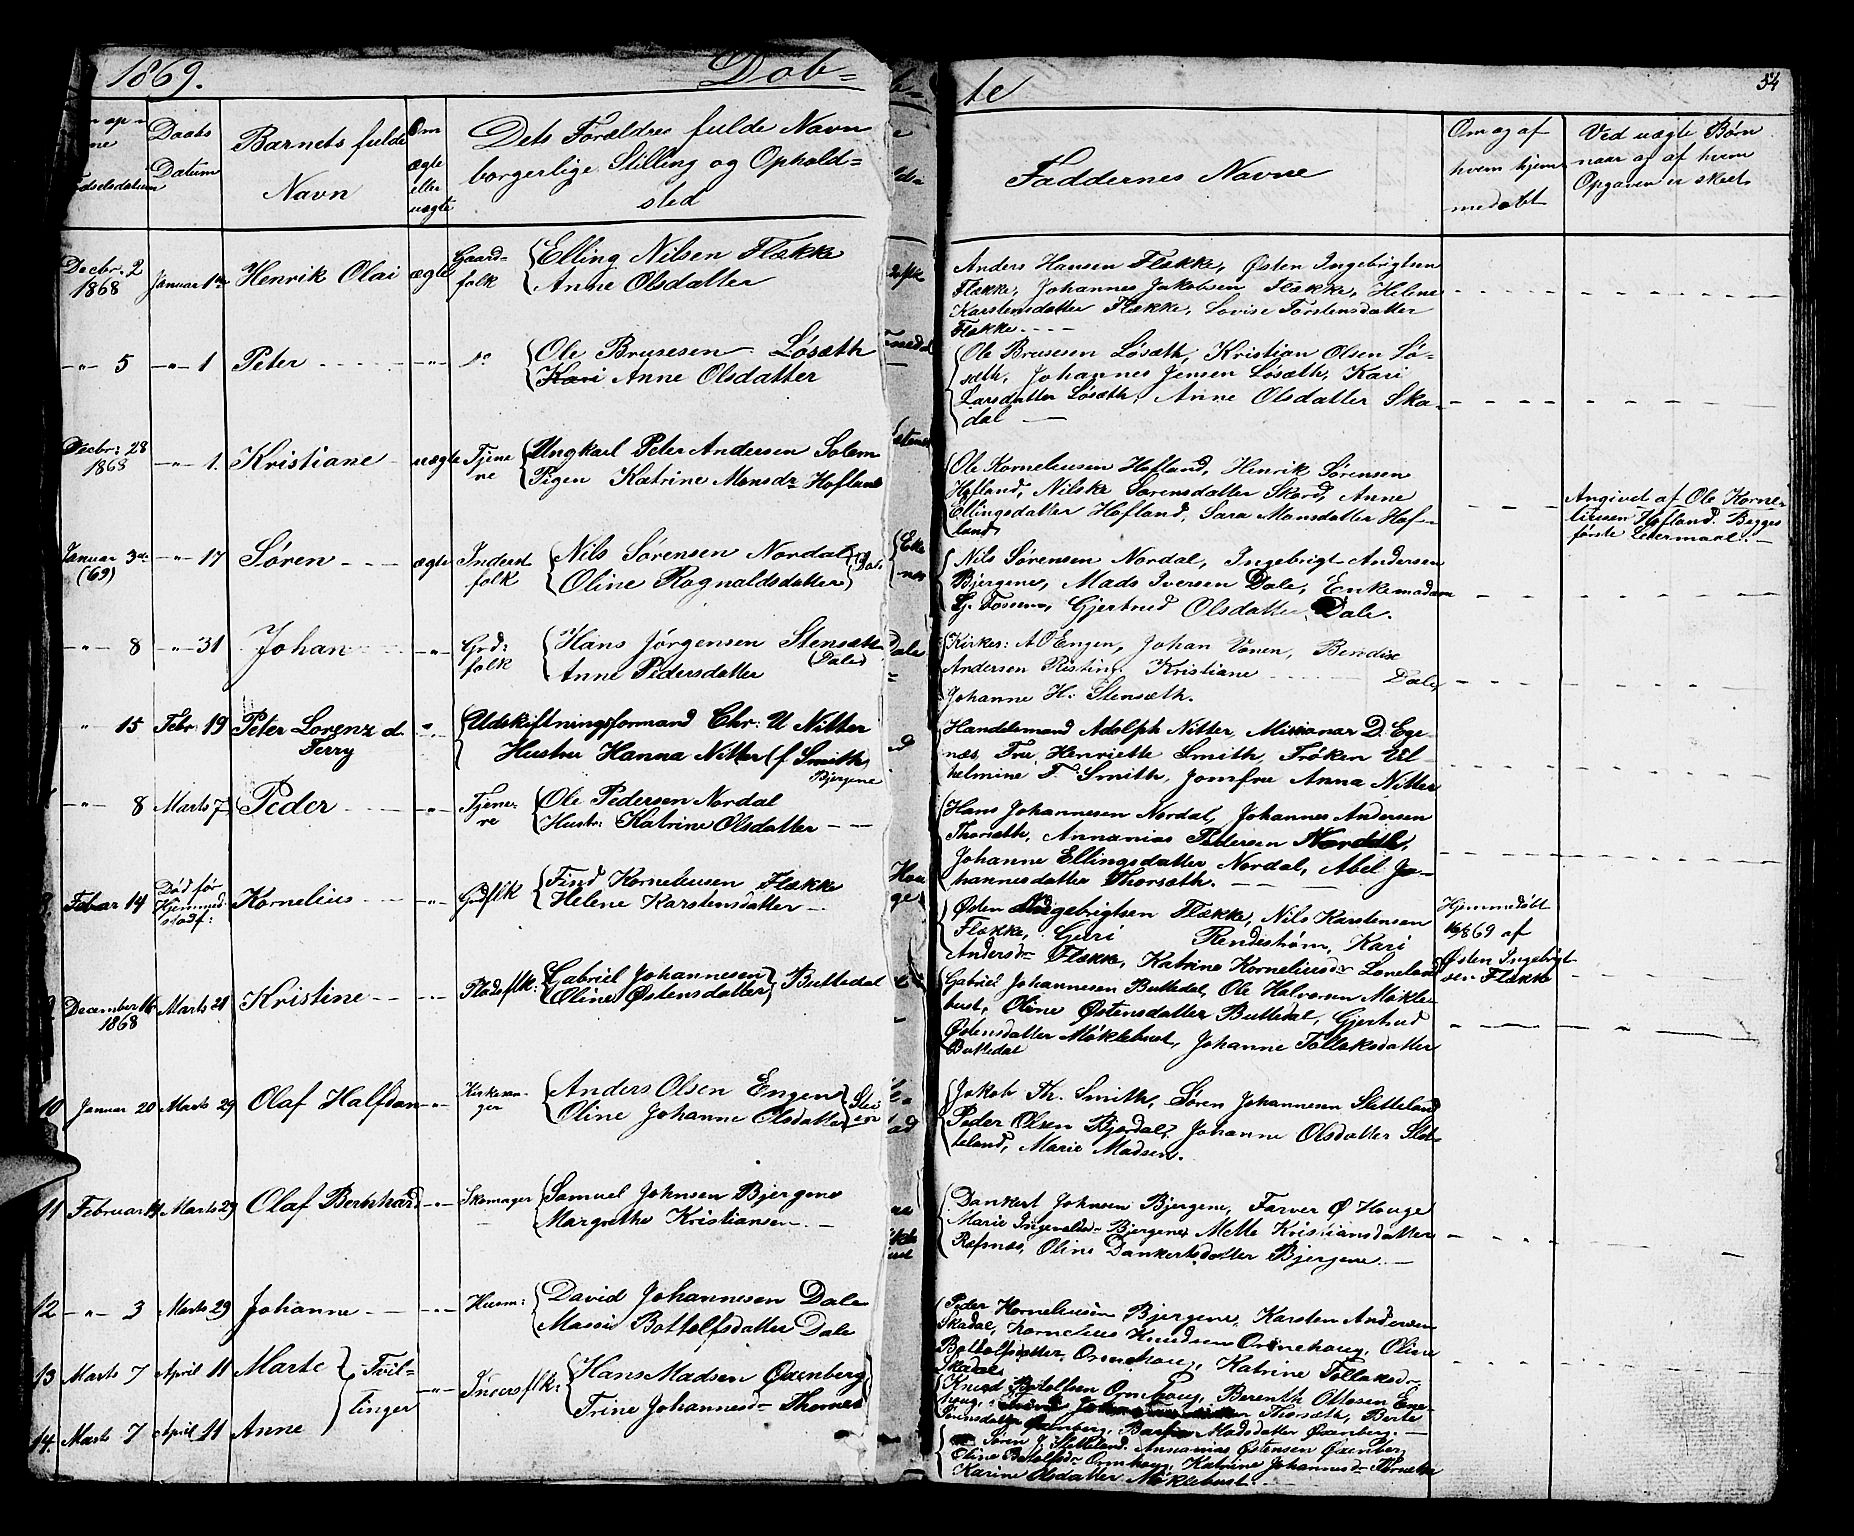 1869.
Døb=
te
54
Daabs
Datum
Barnets fulde
Navn
Om
ægte
eller
uægte
Dets Forældres fulde Navn
borgerlige Stilling og Ophold=
sted
Faddernes Navne
Om og af
hvem hjem
medøbt
Ved uægte Børn
naar og af hvem
Opgaven er skeet
Decbr. 2
1868
Januar 1ste
Henrik Olai
ægte
Gaard-
folk
Elling Nilsen Flække
Anne Olsdatter
Anders Hansen Flække, Østen Ingebrigtsen
Flække, Johannes Jakobsen Flække, Helene
Karstensdatter Flække, Lovise Torstensdatter
Flække.
-"- 5
-"- 1
Peter
-"-
Ole Brusesen Løsæth
Kari Anne Olsdatter
Ole Brusesen Løsæth, Kristian Olsen Lø-
sæth, Johannes Jensen Løsæth, Kari
Larsdatter Løsæth, Anne Olsdatter Ska-
dal
Decbr: 28
1868
-"- 1.
Kristiane
uægte
Tjene
re
Ungkarl Peter Andersen Solem
Pigen Katrine Monsdr Hofland
Ole Korneliussen Hofland, Henrik Sørensen
Hofland, Nilske Sørensdatter Skord, Anne
Ellingsdatter Hofland, Sara Monsdatter Hof-
land
Angivet af Ole Korne-
liussen Hofland. Begges
første Leiermaal.
Januar 3die
(69)
-"- 17
Søren
ægte
Inderst
folk
Nils Sørensen Nordal
Oline Rognaldsdatter
Dale
Nils Sørensen Nordal, Ingebrigt Andersen
Bjergene, Mads Iversen Dale, Enkemadam
G. Fossum, Gjertrud Olsdatter Dale.
-"- 8
-"- 31
Johan
-"-
Grd:
folk
Hans Jørgensen Stensæth
(Dale)
Anne Pedersdatter
Kirkes: A O Engen, Johan Vonen, Bendix
Andersen Risting, Kristiane Dale,
Johanne H. Stensæth.
" 15
Febr. 19
Peter Lorenz d.
Ferry
-"-
Udskiftningsformand Chr: U Nitter
Hustru Hanna Nitter (f. Smith
Bjergene
Handelsmand Adolph Nitter, Missionær D. Ege-
næs, Fru Henriette Smith, Frøken Vil-
helmine F. Smith, Jomfru Anna Nitter
-"- 8
Marts 7
Peder
-"-
Tjene-
re
Ole Pedersen Nordal
Hustr: Katrine Olsdatter
Hans Johannesen Nordal, Johannes Andersen
Thorsæth, Annanias Pedersen Nordal,
Johanne Ellingsdatter Nordal, Abel Jo-
hannesdatter Thorsæth.
Febuar 14
Død før
Hjemmed.
stadf:
Kornelius
-"-
Grdflk
Find Korneliusen Flække
Helene Karstensdatter
Østen Ingebrigtsen Flække, Nils Karstensen
Flække, Guri Rendestrøm, Kari
Andersdr Flække, Katrine Korneliusdr Loneland
Hjemmedøbt
16/2 69 af
Østen Ingebrigt-
sen Flække
9
December 16
1868
Marts 21
Kristine
-"-
Pladsflk:
Gabriel Johannesen
Oline Østensdatter
Buttedal
Gabriel Johannesen Buttedal, Ole Halvorsen Møkle-
bust, Oline Østensdatter Buttedal, Gjertrud
Østensdatter Møklebust, Johanne Tollaksdatter
Buttedal
10
Januar 20
Marts 29
Olaf Halfdan
-"-
Kirkesan-
ger
Anders Olsen Engen
Oline Johanne Olsdatter
Jakob Th. Smith, Søren Johannesen Sletteland
Peder Olsen Bjordal, Johanne Olsdatter Slet-
teland, Marie Madsen.
11
Februar 14
Marts 29
Olaf Bernhard
-"-
Skomager
Samuel Johnsen Bjergene
Margrethe Kristiansen
Dankert Johnsen Bjergene, Farver Ø Houge
Marie Ingevaldsdr Bjergene, Mette Kristiansdatter
Refsnæs, Oline Dankertsdatter Bjergene.
12
-"- 3
Marts 29
Johanne
-"-
Husm:
David Johannesen Dale
Massi Bottolfsdatter Dale
Peder Korneliusen Bjergene, Karsten Andersen
Skadal, Kornelius Knudsen Ormehoug, Oline
Bottolfsdatter, Ormehoug, Katrine Tollaksdr
Skadal
13
Marts 7
April 11
Marte
Tvil-
linger
-"-
Inderstflk:
Hans Madsen Øxenberg
Trine Johannesdr Thornes
Knud Botolfsen Ormhoug, Berenth Ottosen Ene-
houg, Thorsæth, Berte
Madsdatter Øxenberg.
14.
Marts 7
April 11
Anne
Søren J. Sletteland, Annanias Østensen Øxenberg
Oline Botolfsdr Ormhoug, Katrine Johannesdr
Karine Olsdatter Møklebust.